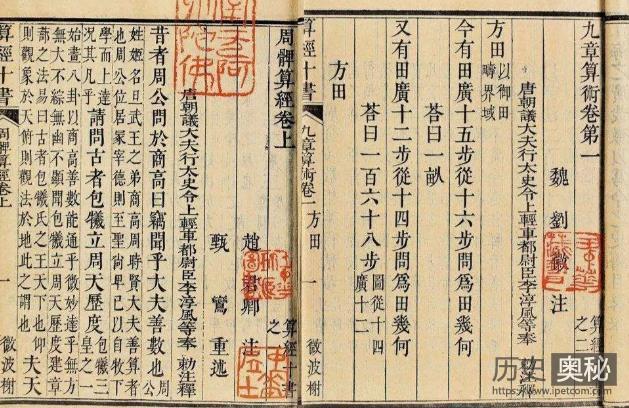 九章算術卷第一
算經十書之二
魏 劉徽 注
唐朝議大夫行太史令上輕車都尉臣李淳風等奉 勅注釋
方田 以御田疇界域
今有田廣十五步從十六步問爲田幾何
荅曰一畝
又有田廣十二步從十四步問爲田幾何
荅曰一百六十八步 圖從十四廣十二
方田
算經十書 九章算術卷一 方田 一 微波榭
周髀算經卷上
算經十書之
趙君卿 注
甄鸞 重述
唐朝議大夫行太史令上輕車都尉臣李淳風等奉 勅注釋
昔者周公問於商高曰竊聞乎大夫善數也 周公
姓姬名旦武王之弟商高周時賢大夫善算者
也周公位居冢宰德則至聖尚卑己以自牧下
學而上達況其凡乎 請問古者包犧立周天歷度 包犧三皇之一
始畫八卦以商高善數能通乎微妙達乎無方
無大不綜無幽不顯聞包犧立周天歷度建章
蔀之法易曰古者包犧氏之王天下也仰
則觀象於天俯則觀法於地此之謂也 夫天
算經十書 周髀算經卷上 一 微波榭
历史奥秘
https://www.ipetcom.com